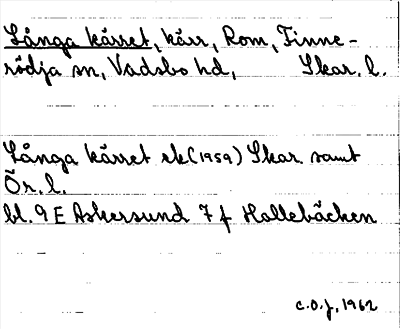 Långa kärret, kärr, Rom, Finne-
rödja sn, Vadsbo hd, Skar. l.
Långa kärret ek (1959) Skar. samt
Ör. l.
bl. 9 E Askersund 7 f Hallebäcken
C.O.J, 1962